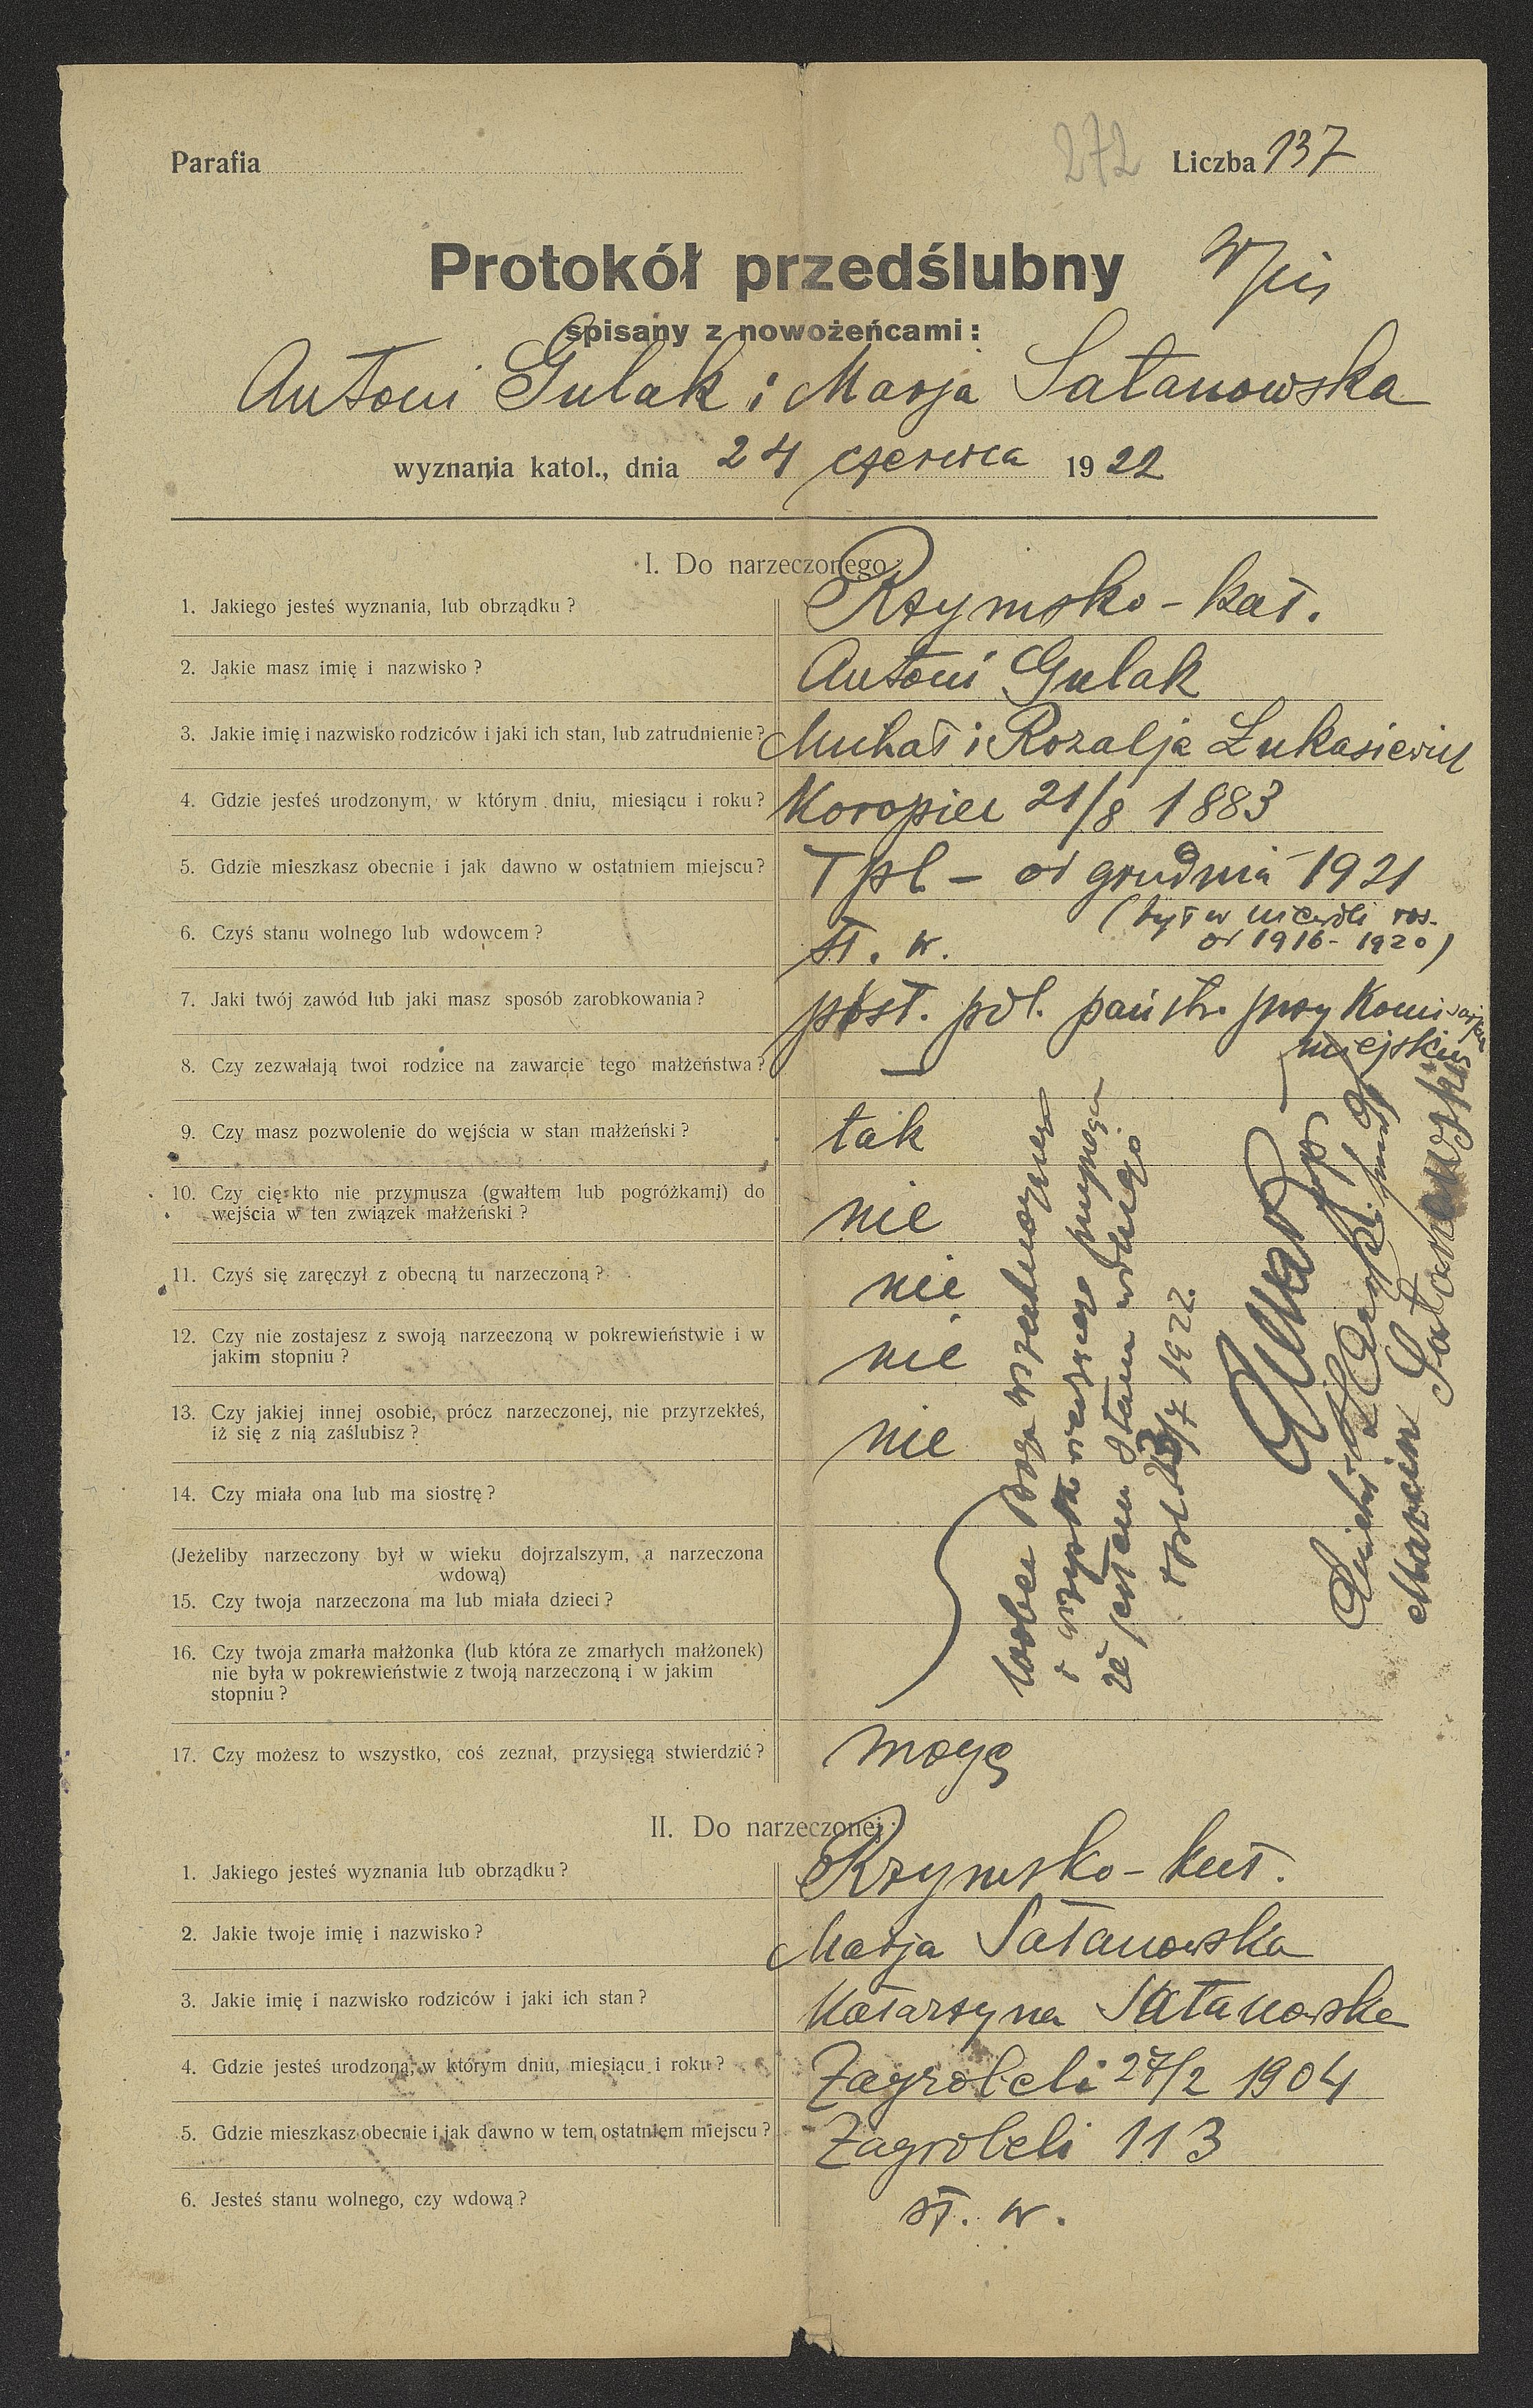 Parafia
272
Liczba 137
Protokół przedślubny
Wpis
spisany z nowożeńcami:
Antoni Gulak i Marja Satanowska
wyznania katol., dnia 24 czerwca 1922
I. Do narzeczonego:
1. Jakiego jesteś wyznania, lub obrządku? Rzymsko-kat.
2. Jakie masz imię i nazwisko? Antoni Gulak
3. Jakie imię i nazwisko rodziców i jaki ich stan, lub zatrudnienie? Michał i Rozalja Łukasiewicz
4. Gdzie jesteś urodzonym, w którym dniu, miesiącu i roku? Koropiec 21/8 1883
5. Gdzie mieszkasz obecnie i jak dawno w ostatniem miejscu? Tpl - od grudnia 1921
(był w niewoli ros.
od 1916-1920)
6. Czyś stanu wolnego lub wdowcem? st. w.
7. Jaki twój zawód lub jaki masz sposób zarobkowania? post. pol. państw. przy
miejskim
8. Czy zezwalają twoi rodzice na zawarcie tego małżeństwa? —
9. Czy masz pozwolenie do wejścia w stan małżeński? tak
10. Czy cię kto nie przymusza (gwałtem lub pogróżkami) do
wejścia w ten związek małżeński? nie
11. Czyś się zaręczył z obecną tu narzeczoną? nie
12. Czy nie zostajesz z swoją narzeczoną w pokrewieństwie i w
jakim stopniu? nie
13. Czy jakiej innej osobie, prócz narzeczonej, nie przyrzekłeś,
iż się z nią zaślubisz? nie
14. Czy miała ona lub ma siostrę?
(Jeżeliby narzeczony był w wieku dojrzalszym, a narzeczona
wdową)
15. Czy twoja narzeczona ma lub miała dzieci?
16. Czy twoja zmarła małżonka (lub która ze zmarłych małżonek)
nie była w pokrewieństwie z twoją narzeczoną i w jakim
stopniu?
17. Czy możesz to wszystko, coś zeznał, przysięgą stwierdzić? mogę
Wobec Boga wszechmogącego
i wszystko wiedzącego przysięgam
że jestem stanu wolnego
Tpl 1922.
Gulak
Marcin Satanowski
II. Do narzeczonej:
1. Jakiego jesteś wyznania lub obrządku? Rzymsko-kat.
2. Jakie twoje imię i nazwisko? Marja Satanowska
3. Jakie imię i nazwisko rodziców i jaki ich stan? Katarzyna Satanowska
4. Gdzie jesteś urodzoną, w którym dniu, miesiącu i roku? Zagrobeli 27/2 1904
5. Gdzie mieszkasz obecnie i jak dawno w tem ostatniem miejscu? Zagrobeli 113
6. Jesteś stanu wolnego, czy wdową? st. w.